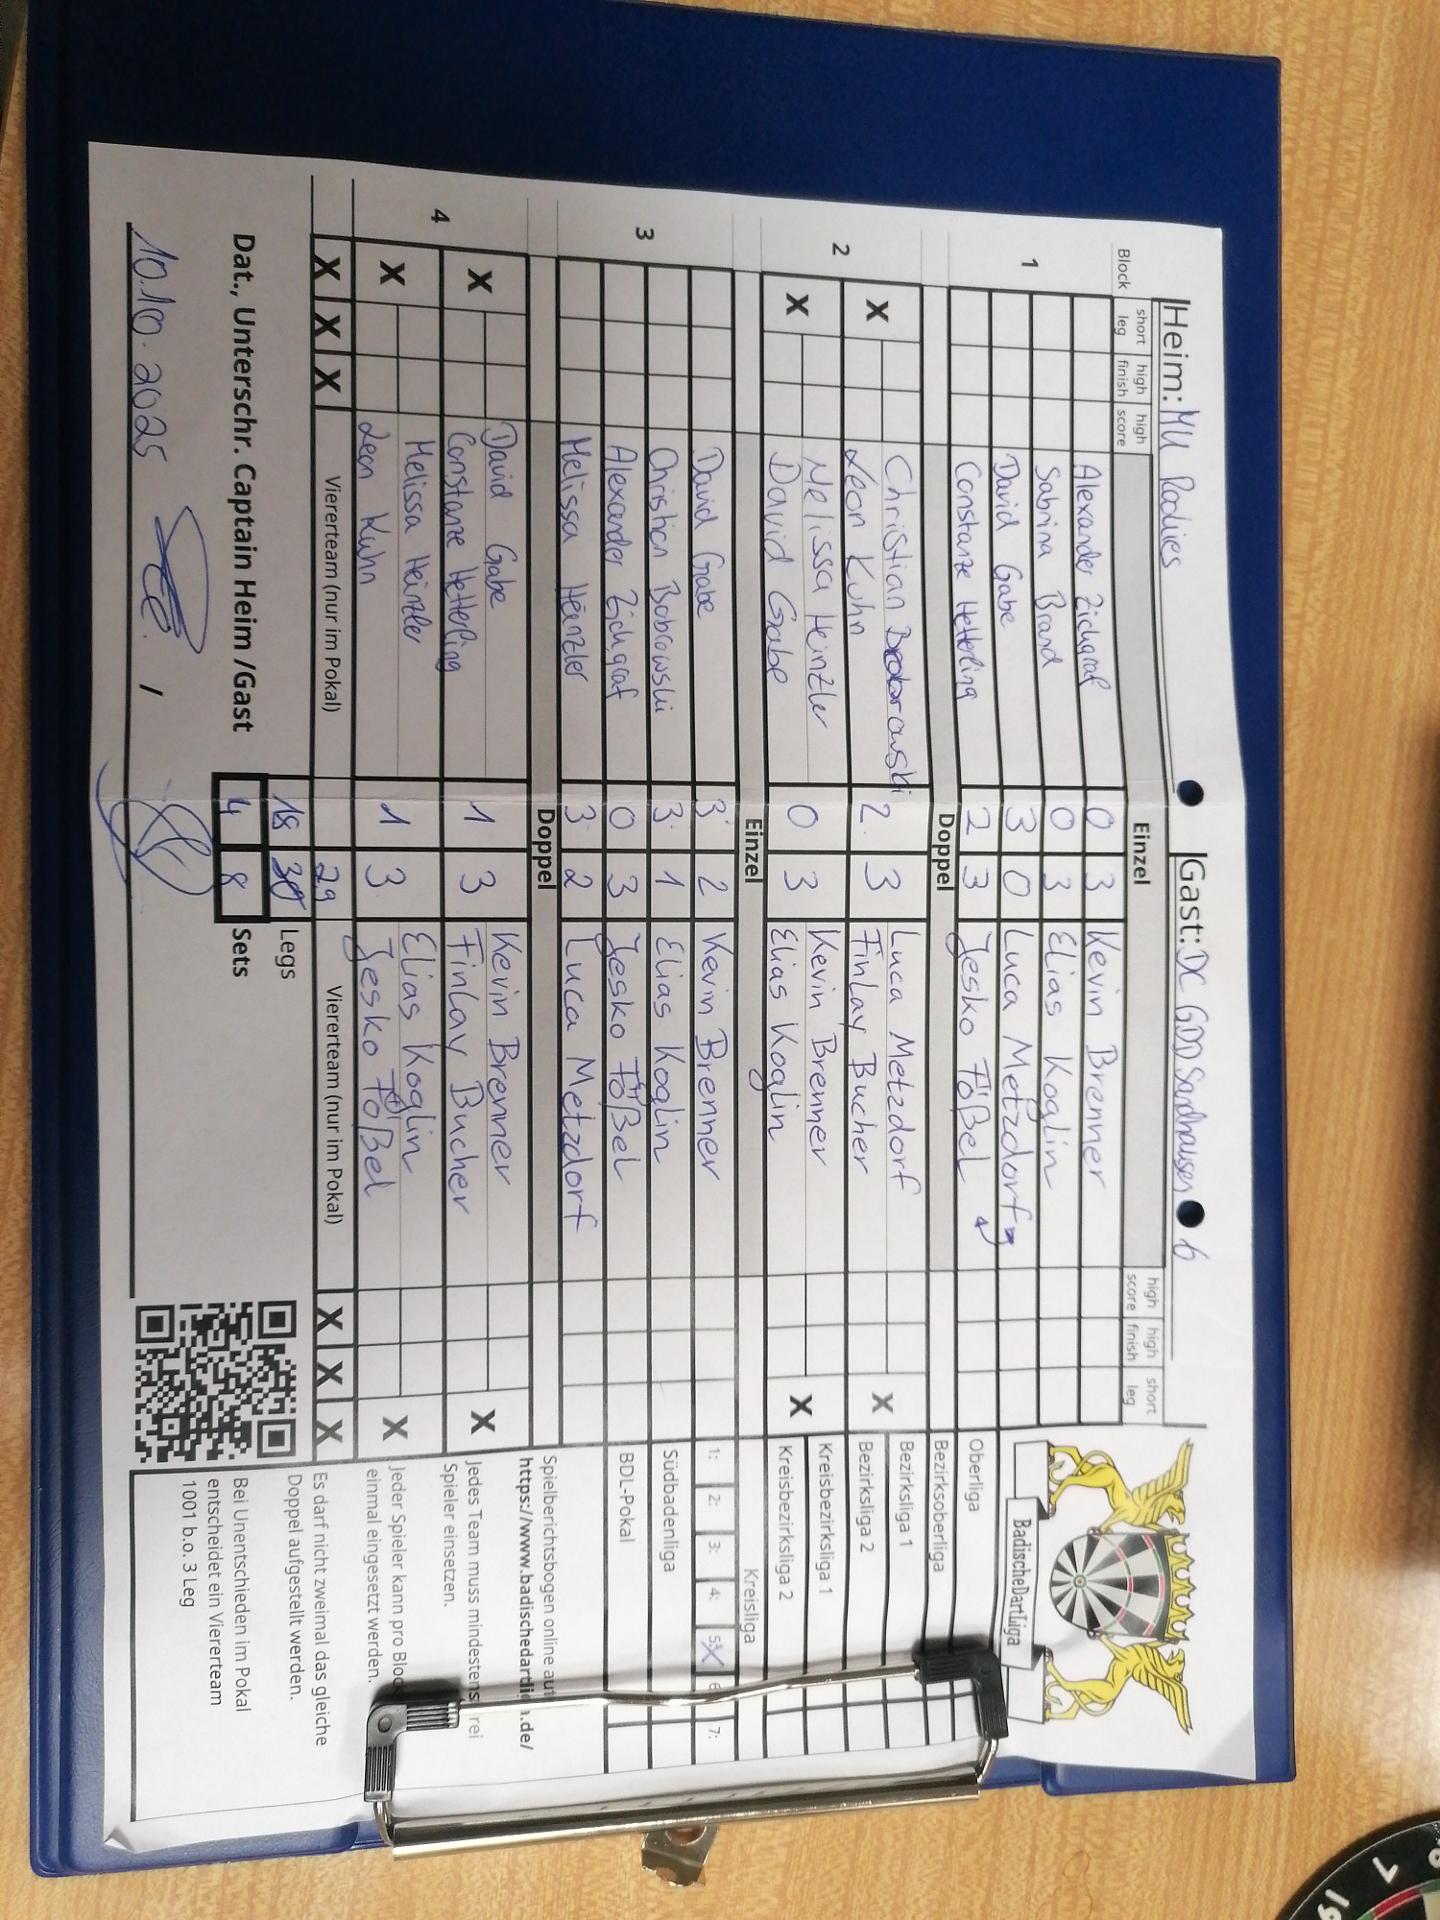 Heim: MU Rodies Gast: DC GDD Sandhausen 6
Block short leg high finish high score Einzel high score high finish short leg
1
Alexander Zichgraf 0 3 Kevin Brenner
Sabrina Brand 0 3 Elias Koglin
David Gabe 3 0 Luca Metzdorf
Constanze Hetterling 2 3 Jesko Fößel
Doppel
2
X Christian Bobrowski 2 3 Luca Metzdorf X
Leon Kuhn Finlay Bucher
X Melissa Heinzler 0 3 Kevin Brenner X
David Gabe Elias Koglin
Einzel
3
David Gabe 3 2 Kevin Brenner
Christian Bobrowski 3 1 Elias Koglin
Alexander Zichgraf 0 3 Jesko Fößel
Melissa Heinzler 3 2 Luca Metzdorf
Doppel
4
X David Gabe 1 3 Kevin Brenner X
Constanze Hetterling Finlay Bucher
X Melissa Heinzler 1 3 Elias Koglin X
Leon Kuhn Jesko Fößel
X X X Viererteam (nur im Pokal) 29 Viererteam (nur im Pokal) X X X
18 30 Legs
Dat., Unterschr. Captain Heim /Gast 4 8 Sets
10.10.2025 /
BadischeDartLiga
Oberliga
Bezirksoberliga
Bezirksliga 1
Bezirksliga 2
Kreisbezirksliga 1
Kreisbezirksliga 2
Kreisliga
1: 2: 3: 4: 5: X 6 7:
Südbadenliga
BDL-Pokal
Spielberichtsbogen online auf
https://www.badischedartliga.de/
Jedes Team muss mindestens drei
Spieler einsetzen.
Jeder Spieler kann pro Block
einmal eingesetzt werden.
Es darf nicht zweimal das gleiche
Doppel aufgestellt werden.
Bei Unentschieden im Pokal
entscheidet ein Viererteam
1001 b.o. 3 Leg
7
19